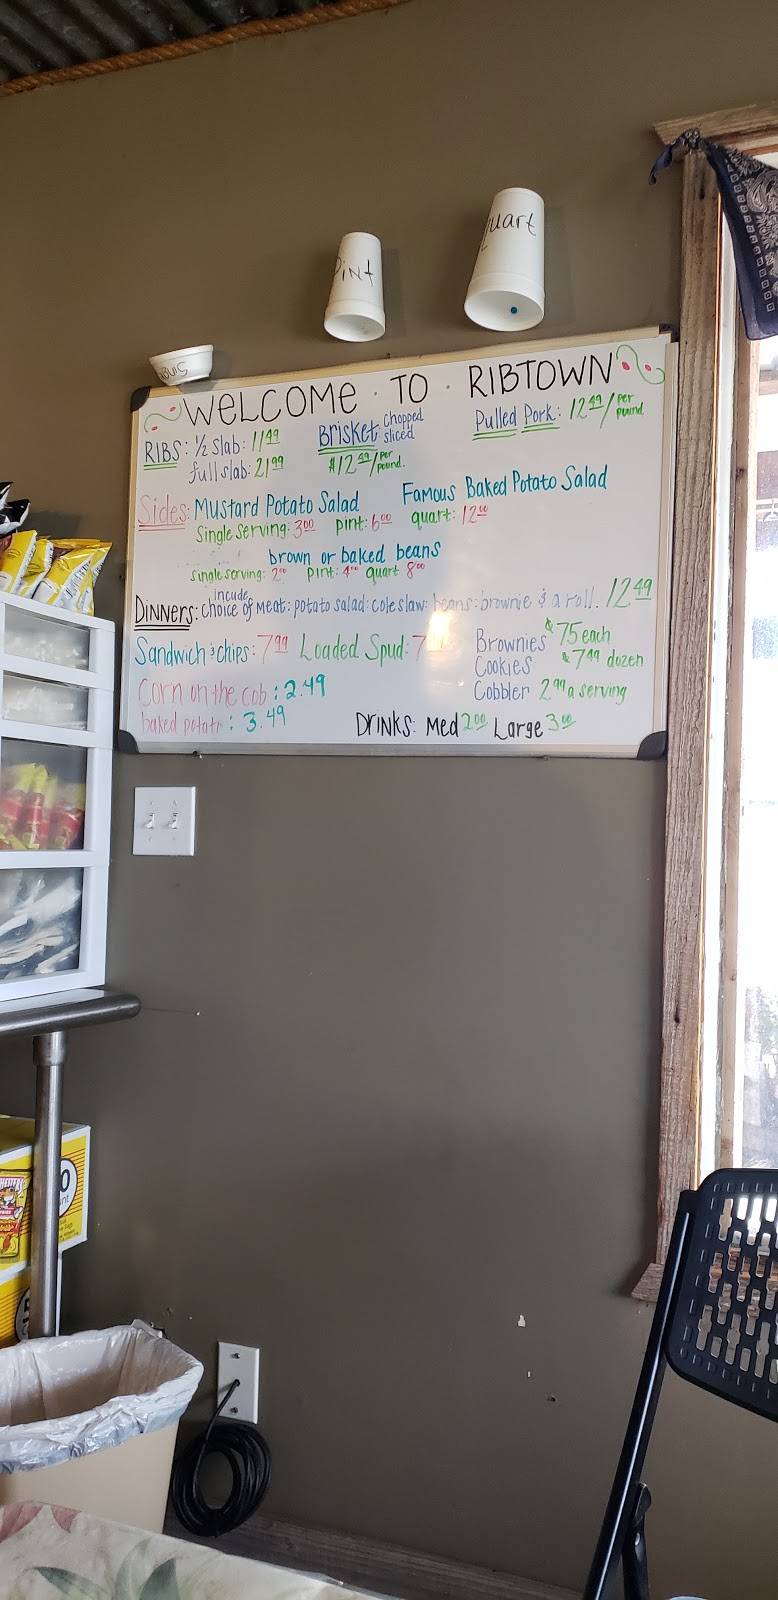 Pint
Quart
WELCOME · TO · RIBTOWN
RIBS: 1/2 slab: 11.49
full slab: 21.99
Brisket: chopped
sliced
$12.49/per pound.
Pulled Pork: 12.49/per pound
Sides: Mustard Potato Salad Famous Baked Potato Salad
Single Serving: 3.00 pint: 6.00 quart: 12.00
brown or baked beans
single serving: 2.00 pint: 4.00 quart 8.00
DINNERS: include
choice of meat: potato salad: coleslaw: beans: brownie & a roll. 12.49
Sandwich & chips: 7.99 Loaded Spud: 7
Brownies $.75 each
Cookies $7.49 dozen
Cobbler 2.99 a serving
Corn on the cob: 2.49
baked potato: 3.49
Drinks: Med 2.00 Large 3.00